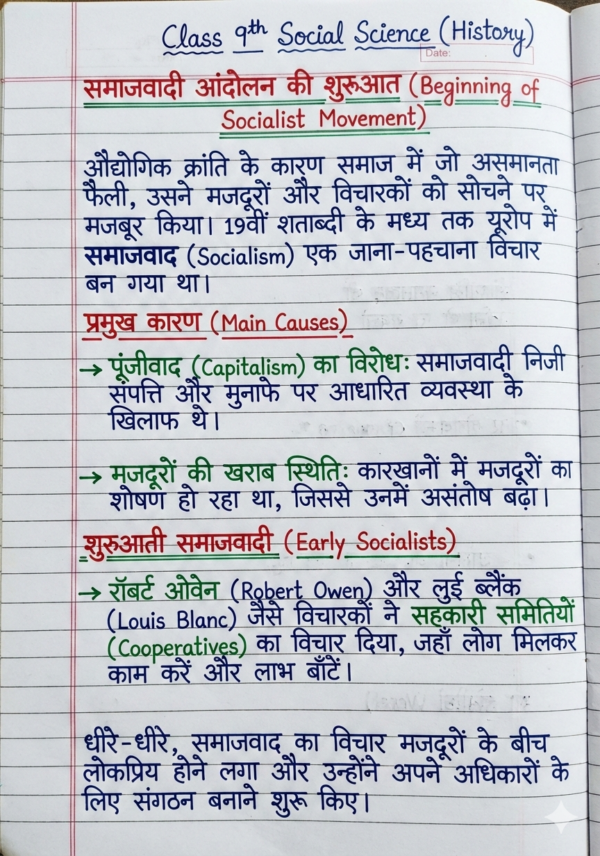 Class 9th Social Science (History)
Date:
समाजवादी आंदोलन की शुरुआत (Beginning of
Socialist Movement)
औद्योगिक क्रांति के कारण समाज में जो असमानता
फैली, उसने मजदूरों और विचारकों को सोचने पर
मजबूर किया। 19वीं शताब्दी के मध्य तक यूरोप में
समाजवाद (Socialism) एक जाना-पहचाना विचार
बन गया था।
प्रमुख कारण (Main Causes)
→ पूंजीवाद (Capitalism) का विरोध: समाजवादी निजी
संपत्ति और मुनाफे पर आधारित व्यवस्था के
खिलाफ थे।
→ मजदूरों की खराब स्थिति: कारखानों में मजदूरों का
शोषण हो रहा था, जिससे उनमें असंतोष बढ़ा।
शुरुआती समाजवादी (Early Socialists)
→ रॉबर्ट ओवेन (Robert Owen) और लुई ब्लैंक
(Louis Blanc) जैसे विचारकों ने सहकारी समितियों
(Cooperatives) का विचार दिया, जहाँ लोग मिलकर
काम करें और लाभ बाँटें।
धीरे-धीरे, समाजवाद का विचार मजदूरों के बीच
लोकप्रिय होने लगा और उन्होंने अपने अधिकारों के
लिए संगठन बनाने शुरू किए।